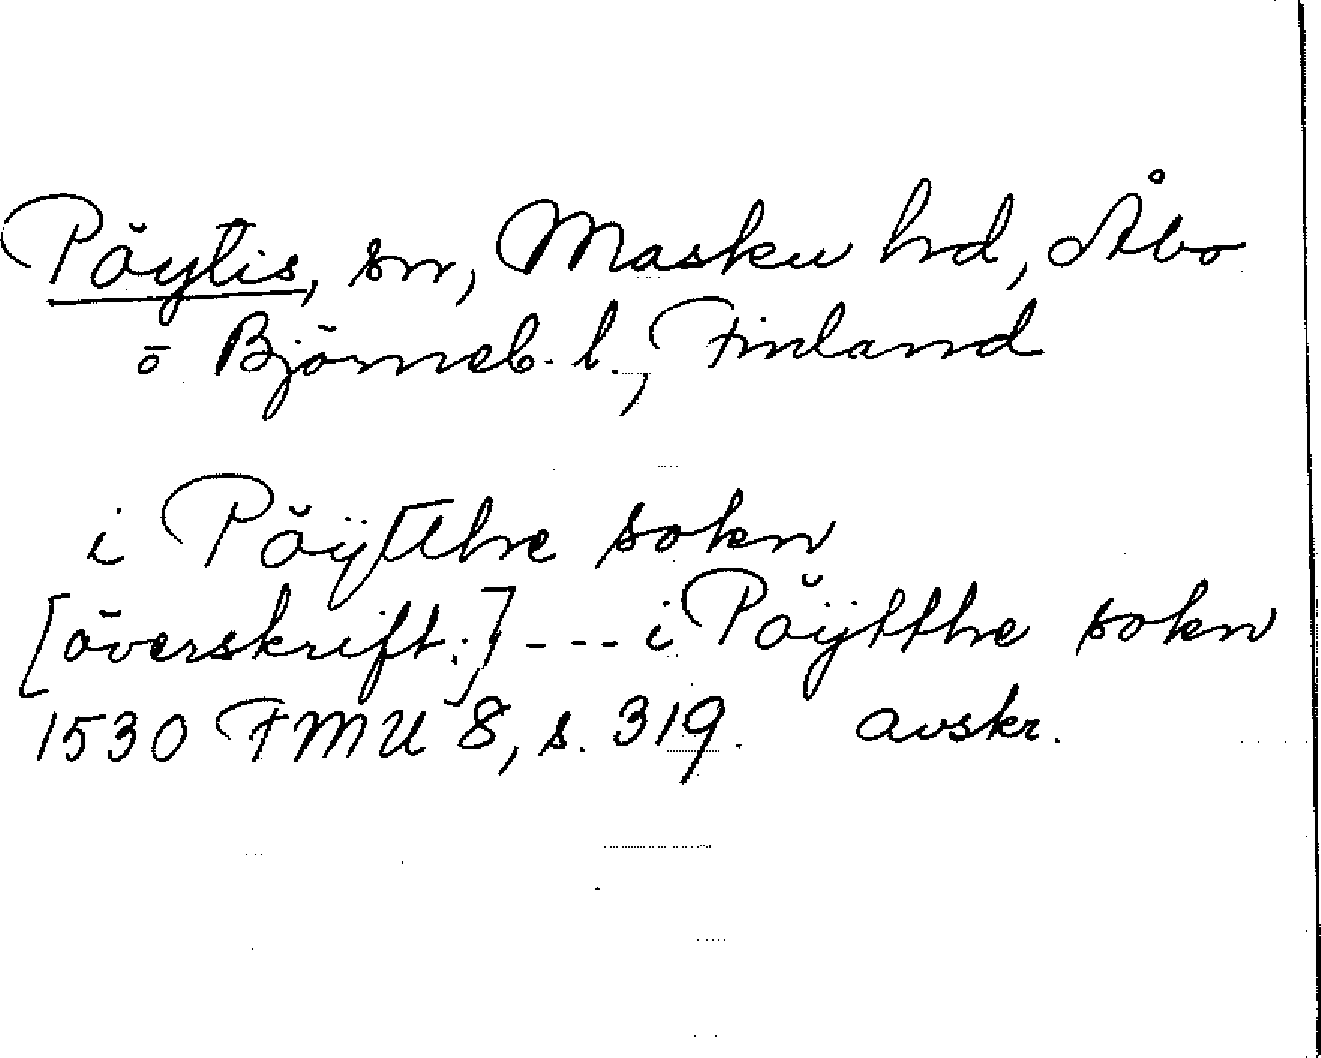 Pöytis, sn, Masku hd, Åbo
o Björneb. l., Finland
i Pöÿtthe sokn
[överskrift:] --- i Pöÿtthe sokn
1530 FMU 8, s. 319. avskr.